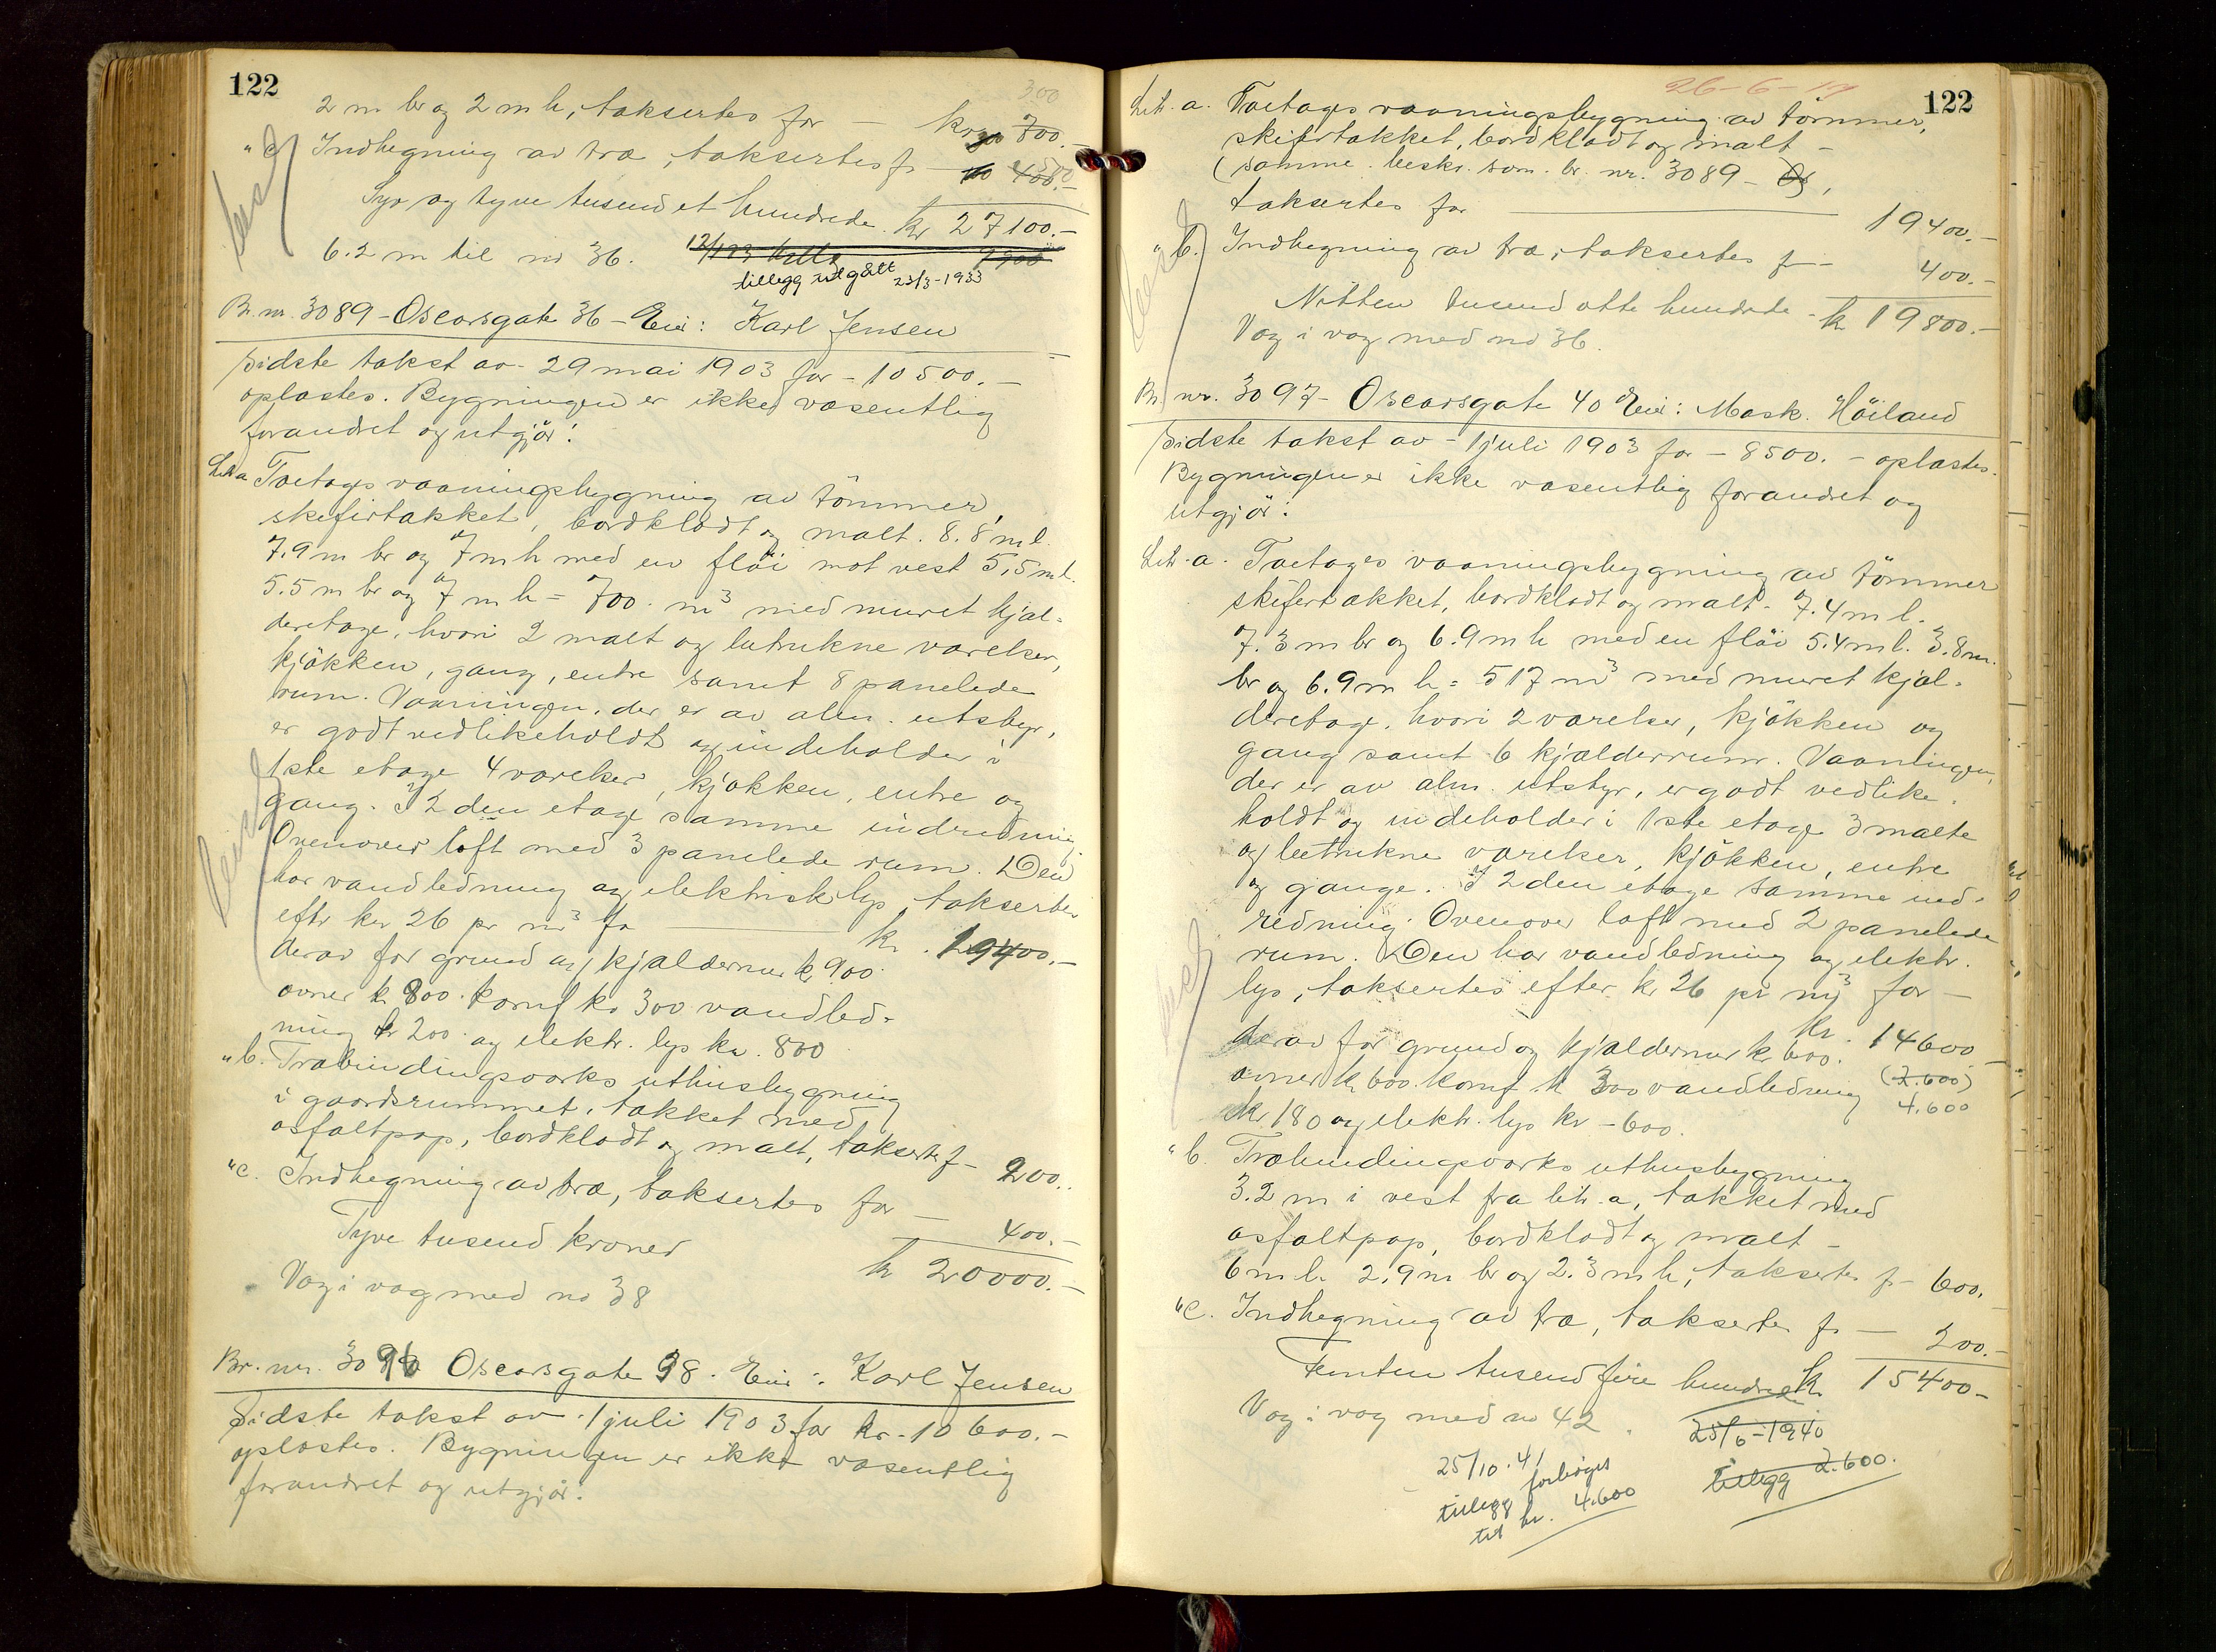 122
300
2 m br og 2 m h, taksertes for — kr 700.-
" c Indhegning av træ, taksertes fr — 400.-
Syv og tyve tusend et hundrede kr 27100.-
6.2 m til no 36.
tillegg utgått 23/3-1933
Br. nr. 3089 - Oscarsgate 36 - Eier: Karl Jensen
Sidste takst av - 29 mai 1903 for - 10500.-
oplæstes. Bygningen er ikke væsentlig
forandret og utgjör:
Lit a Toetages vaaningsbygning av tömmer,
skifertækket, bordklædt og malt. 8.8 m l.
7.9 m br og 7 m h med en flöi mot vest 5,5 m l.
5.5 m br og 7 m h = 700 m³ med muret kjæl-
deretage, hvori 2 malt og betrukne værelser,
kjökken, gang, entre samt 8 panelede
rum. Vaaningen, der er av alm. utstyr,
er godt vedlikeholdt og indeholder i
1ste etage 4 værelser, kjökken, entre og
gang. I 2den etage samme indredning
Ovenover loft med 3 panelede rum. Den
har vandledning og elektrisk lys, taksertes
eftr kr 26 pr m³ for — kr. 19400.-
derav for grund og kjældermur kr 900.
ovner kr 800. komf kr 300 vandled-
ning kr 200. og elektr. lys kr. 800
" b. Træbindingsverks uthusbygning
i gaardsrummet, tækket med
asfaltpap, bordklædt og malt, taksert f - 200.-
" c. Indhegning av træ, taksertes for — 400.-
Tyve tusend kroner kr 20000.-
Væg i væg med no 38
Br. nr. 3090 Oscarsgate 38. Eier: Karl Jensen
Sidste takst av 1 juli 1903 for kr. 10600.-
oplæstes. Bygningen er ikke væsentlig
forandret og utgjör:
26-6-17
122
Lit. a. Toetages vaaningsbygning av tömmer,
skifertækket, bordklædt og malt -
(samme beskr. som br. nr. 3089 -
taksertes for — 19400.-
" b. Indhegning av træ, taksertes f - 400.-
Nitten tusend otte hundrede - kr 19800.-
Væg i væg med no 36.
Br. nr. 3097 - Oscarsgate 40 Eier: Mask. Höiland
Sidste takst av - 1 juli 1903 for - 8500. - oplæstes.
Bygningen er ikke væsentlig forandret og
utgjör:
Lit. a. Toetages vaaningsbygning av tömmer
skifertækket, bordklædt og malt. 7.4 m l.
7.3 m br og 6.9 m h med en flöi 5.4 m l. 3.8 m.
br og 6.9 m h = 517 m³ med muret kjæl-
deretage, hvori 2 værelser, kjökken og
gang samt 6 kjælderrum. Vaaningen,
der er av alm. utstyr, er godt vedlike-
holdt og indeholder i 1ste etage 3 malte
og betrukne værelser, kjökken, entre
og gange. I 2den etage samme ind-
redning. Ovenover loft med 2 panelede
rum. Den har vandledning og elektr.
lys, taksertes efter kr 26 pr m³ for —
kr. 14600 -
derav for grund og kjældermur kr 600.
(2.600)
ovner kr 600. komf. kr 300 vandledning
4.600
kr 180 og elektr. lys kr - 600.
" b. Træbindingsverks uthusbygning
3.2 m i vest fra lit. a, tækket med
asfaltpap, bordklædt og malt -
6 m l. 2.9 m br og 2.3 m h, taksertes f - 600.-
" c. Indhegning av træ, taksertes fr — 200.-
Femten tusend fire hundrede kr 15400.-
Væg i væg med no 42.
25/6-1940
tillegg 2.600.
25/10.41
forhöiges
tillegg
til kr. 4.600